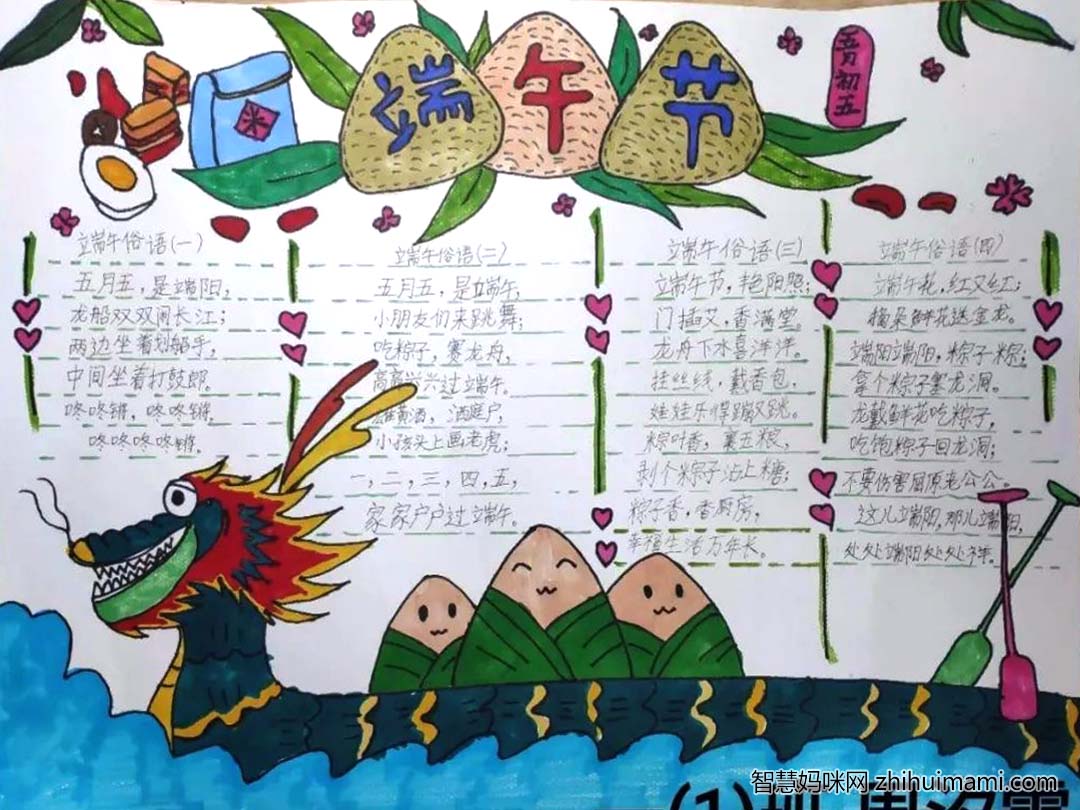 端午节
五月初五
米
端午俗语(一)
五月五,是端阳,
龙船双双闹长江;
两边坐着划船手,
中间坐着打鼓郎。
咚咚锵,咚咚锵,
咚咚咚咚锵。
端午俗语(二)
五月五,是端午,
小朋友们来跳舞;
吃粽子,赛龙舟,
高高兴兴过端午。
雄黄酒,洒庭户,
小孩头上画老虎;
一,二,三,四,五,
家家户户过端午。
端午俗语(三)
端午节,艳阳照;
门插艾,香满堂。
龙舟下水喜洋洋。
挂丝线,戴香包,
娃娃乐得蹦又跳。
粽叶香,裹五粮,
剥个粽子沾上糖;
粽子香,香厨房,
幸福生活万年长。
端午俗语(四)
端午花,红又红;
摘朵鲜花送金龙。
端阳端阳,粽子粽;
拿个粽子塞龙洞。
龙戴鲜花吃粽子,
吃饱粽子回龙洞;
不要伤害屈原老公公。
这儿端阳,那儿端阳,
处处端阳处处
智慧妈咪网 zhihuimami.com
(1)班